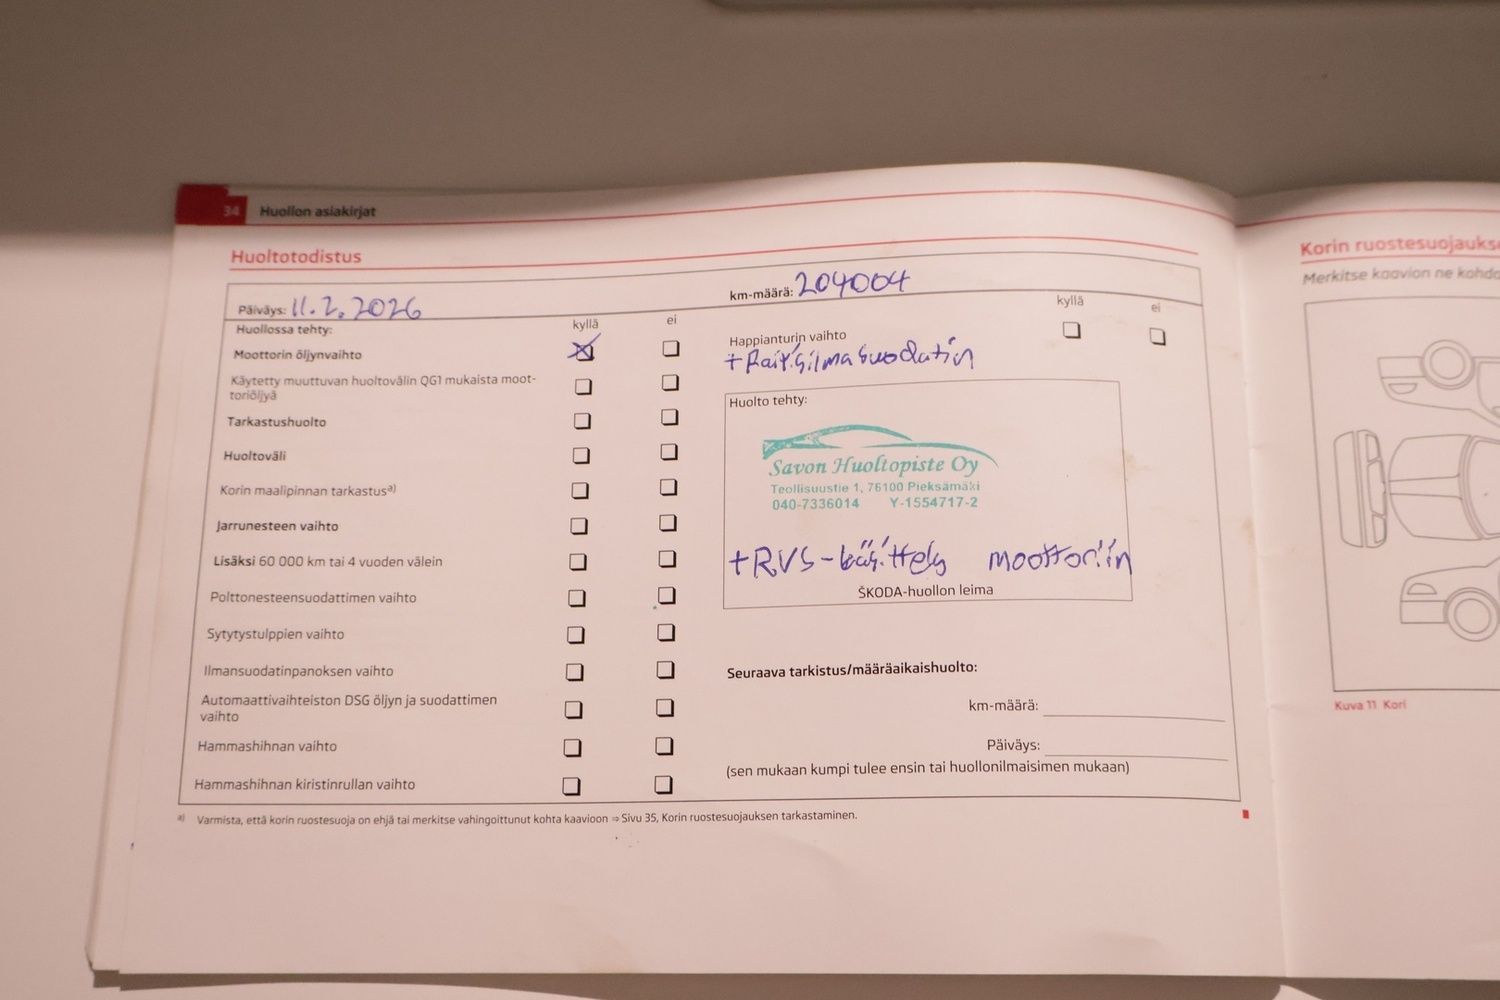 34 Huollon asiakirjat
Huoltotodistus
Päiväys: 11.2.2026
km-määrä: 204004
Huollossa tehty:
kyllä
ei
Moottorin öljynvaihto
Käytetty muuttuvan huoltovälin QG1 mukaista moot-
toriöljyä
Tarkastushuolto
Huoltoväli
Korin maalipinnan tarkastusa)
Jarrunesteen vaihto
Lisäksi 60 000 km tai 4 vuoden välein
Polttonesteensuodattimen vaihto
Sytytystulppien vaihto
Ilmansuodatinpanoksen vaihto
Automaattivaihteiston DSG öljyn ja suodattimen
vaihto
Hammashihnan vaihto
Hammashihnan kiristinrullan vaihto
kyllä
ei
Happianturin vaihto
+Raitisilmasuodatin
Huolto tehty:
Savon Huoltopiste Oy
Teollisuustie 1, 76100 Pieksämäki
040-7336014 Y-1554717-2
+RVS-käsittely moottoriin
ŠKODA-huollon leima
Seuraava tarkistus/määräaikaishuolto:
km-määrä:
Päiväys:
(sen mukaan kumpi tulee ensin tai huollonilmaisimen mukaan)
a) Varmista, että korin ruostesuoja on ehjä tai merkitse vahingoittunut kohta kaavioon ⇒ Sivu 35, Korin ruostesuojauksen tarkastaminen.
Korin ruostesuojaukse
Merkitse kaavion ne kohda
Kuva 11 Kori